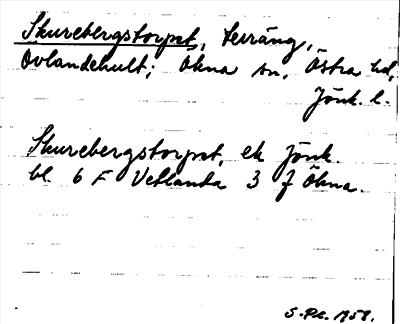 Skurebergstorpet, terräng,
Övlandehult; Ökna sn, Östra hd,
Jönk. l.
Skurebergstorpet, ek Jönk.
bl 6 F Vetlanda 3 f Ökna.
S. P-l. 1958.